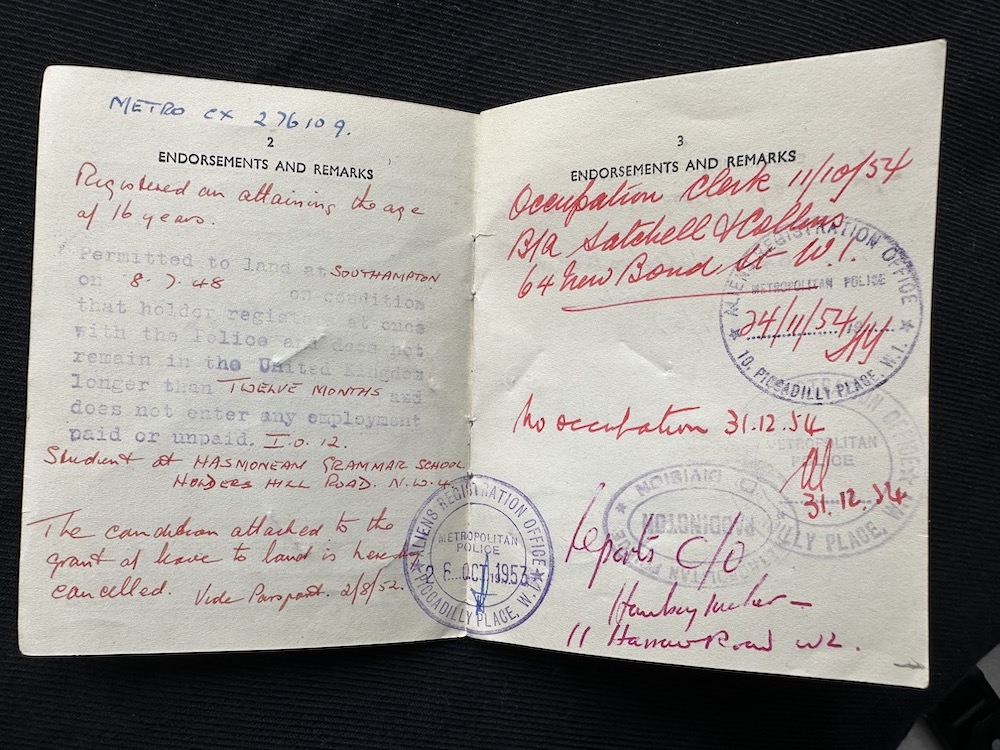 METRO CX 276109.
2
ENDORSEMENTS AND REMARKS
Registered on attaining the age
of 16 years.
Permitted to land at SOUTHAMPTON
on 8.7.48 on condition
that holder registers at once
with the Police and does not
remain in the United Kingdom
longer than TWELVE MONTHS and
does not enter any employment
paid or unpaid. I.O.12.
Student at HASMONEAN GRAMMAR SCHOOL
HOLDERS HILL ROAD. N.W.4.
The condition attached to the
grant of leave to land is hereby
cancelled. Vide Passport. 2/8/52.
ALIENS REGISTRATION OFFICE
METROPOLITAN
POLICE
26 OCT 1953
PICCADILLY PLACE, W.1
3
ENDORSEMENTS AND REMARKS
Occupation Clerk 11/10/54
B/A Satchell & Collins
64 New Bond St W.1.
ALIENS REGISTRATION OFFICE
METROPOLITAN POLICE
24/11/54
10, PICCADILLY PLACE, W.1.
No occupation 31.12.54
METROPOLITAN
POLICE
31.12.54
PICCADILLY PLACE, W.1
DIVISION
PADDINGTON
Reports c/o
11 Harrow Road W2.